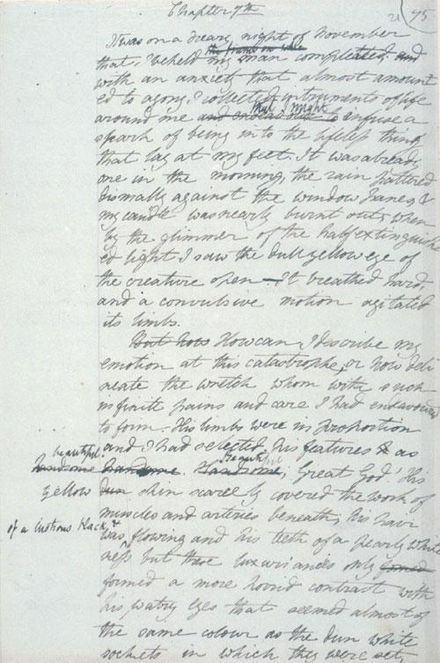 Chapter 7th
21
75
It was on a dreary night of November
the frame on whic
that I beheld my man completed, and
with an anxiety that almost amount
ed to agony, I collected instruments of life
that I might
around me and endeavour to infuse a
spark of being into the lifeless thing
that lay at my feet. It was already
one in the morning, the rain pattered
dismally against the window panes, &
my candle was nearly burnt out, when
by the glimmer of the half extinguish
ed light I saw the dull yellow eye of
the creature open — It breathed hard,
and a convulsive motion agitated
its limbs.
But how How can I describe my
emotion at this catastrophe, or how deli
neate the wretch whom with such
infinite pains and care I had endeavoured
to form. His limbs were in proportion
and I had selected his features & as
beautiful
beautiful
handsome handsome. Handsome; Great God! His
yellow dun skin scarcely covered the work of
muscles and arteries beneath; his hair
of a lustrous black, &
was flowing and his teeth of a pearly white
ness but these luxuriancies only formed
formed a more horrid contrast with
his watry eyes that seemed almost of
the same colour as the dun white
sockets in which they were set,